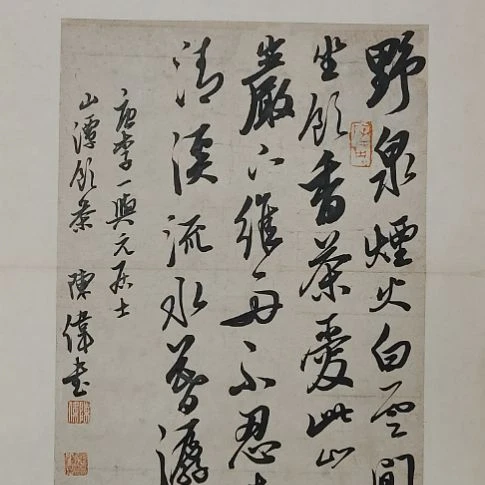 野泉煙火白雲間
坐飲香茶愛此山
巖下維舟不忍
清溪流水暮潺
唐李一與元居士
山潭飲茶 陳偉書